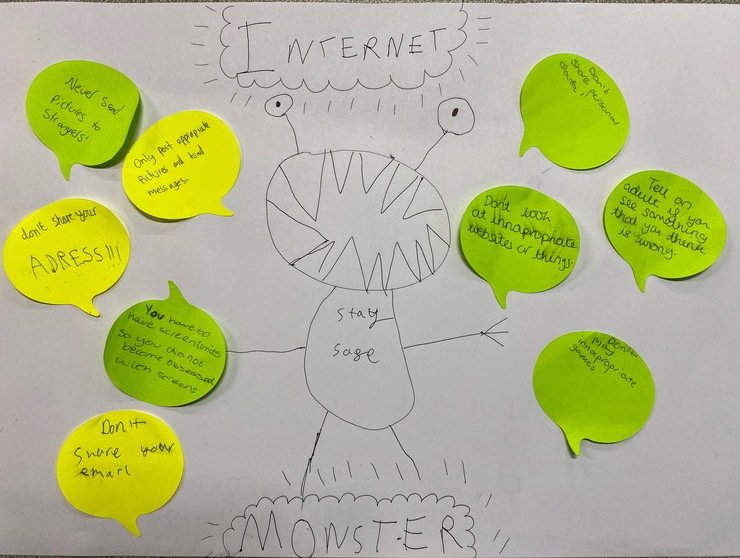 INTERNET
Never send
pictures to
Strangers!
Only post appropiate
pictures and kind
messages.
don't share your
ADRESS!!!
You have to
have screenlimits
so you do not
become obsessed
with screens
Don't
Share your
email
Stay
Safe
Don't
share personal
Don't look
at innapropiate
websites or things.
Tell an
adult if you
see something
that you think
is wrong.
Don't
play
innapropriate
games
MONSTER